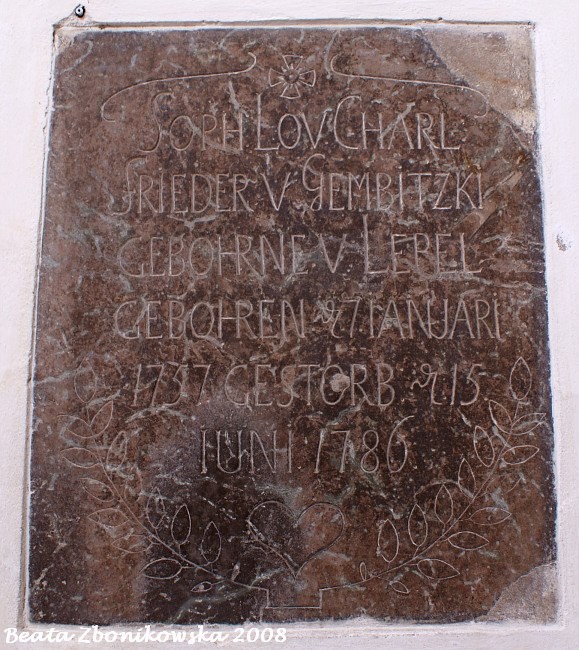 SOPH LOV CHARL
FRIEDER V GEMBITZKI
GEBOHRNE V LEPEL
GEBOHREN 27 IANUARI
1737 GESTORB 15
IUNI 1786
Beata Zbonikowska 2008